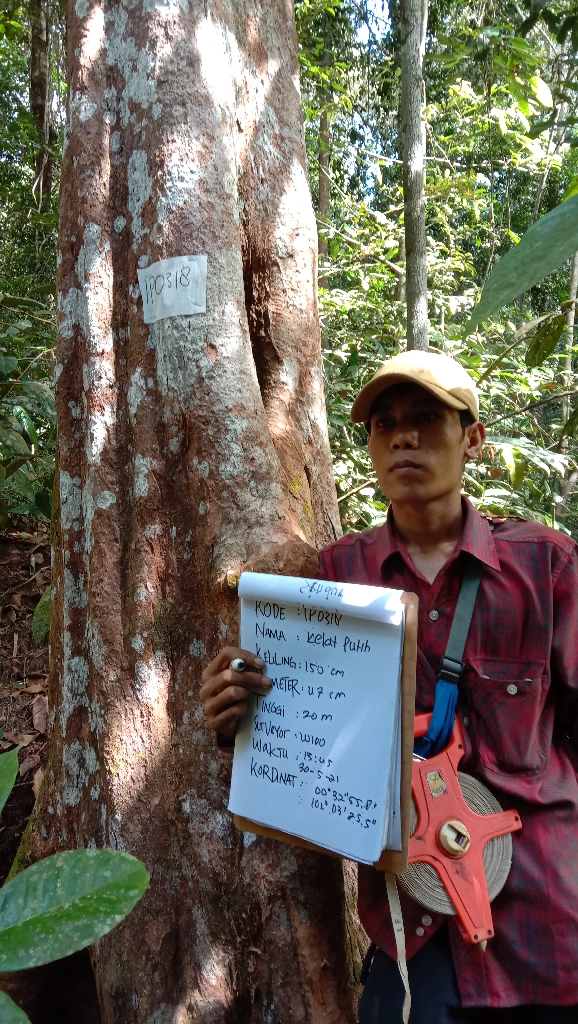 IP0318
KODE : IP0318
NAMA : Kelat Putih
KELLING : 150 cm
METER : 47 cm
TINGGI : 20 m
SURVEYOR : WIDO
WAKTU : 13:05
30-5-21
KORDINAT : 00°32'55.8"
: 102°03'25.5"